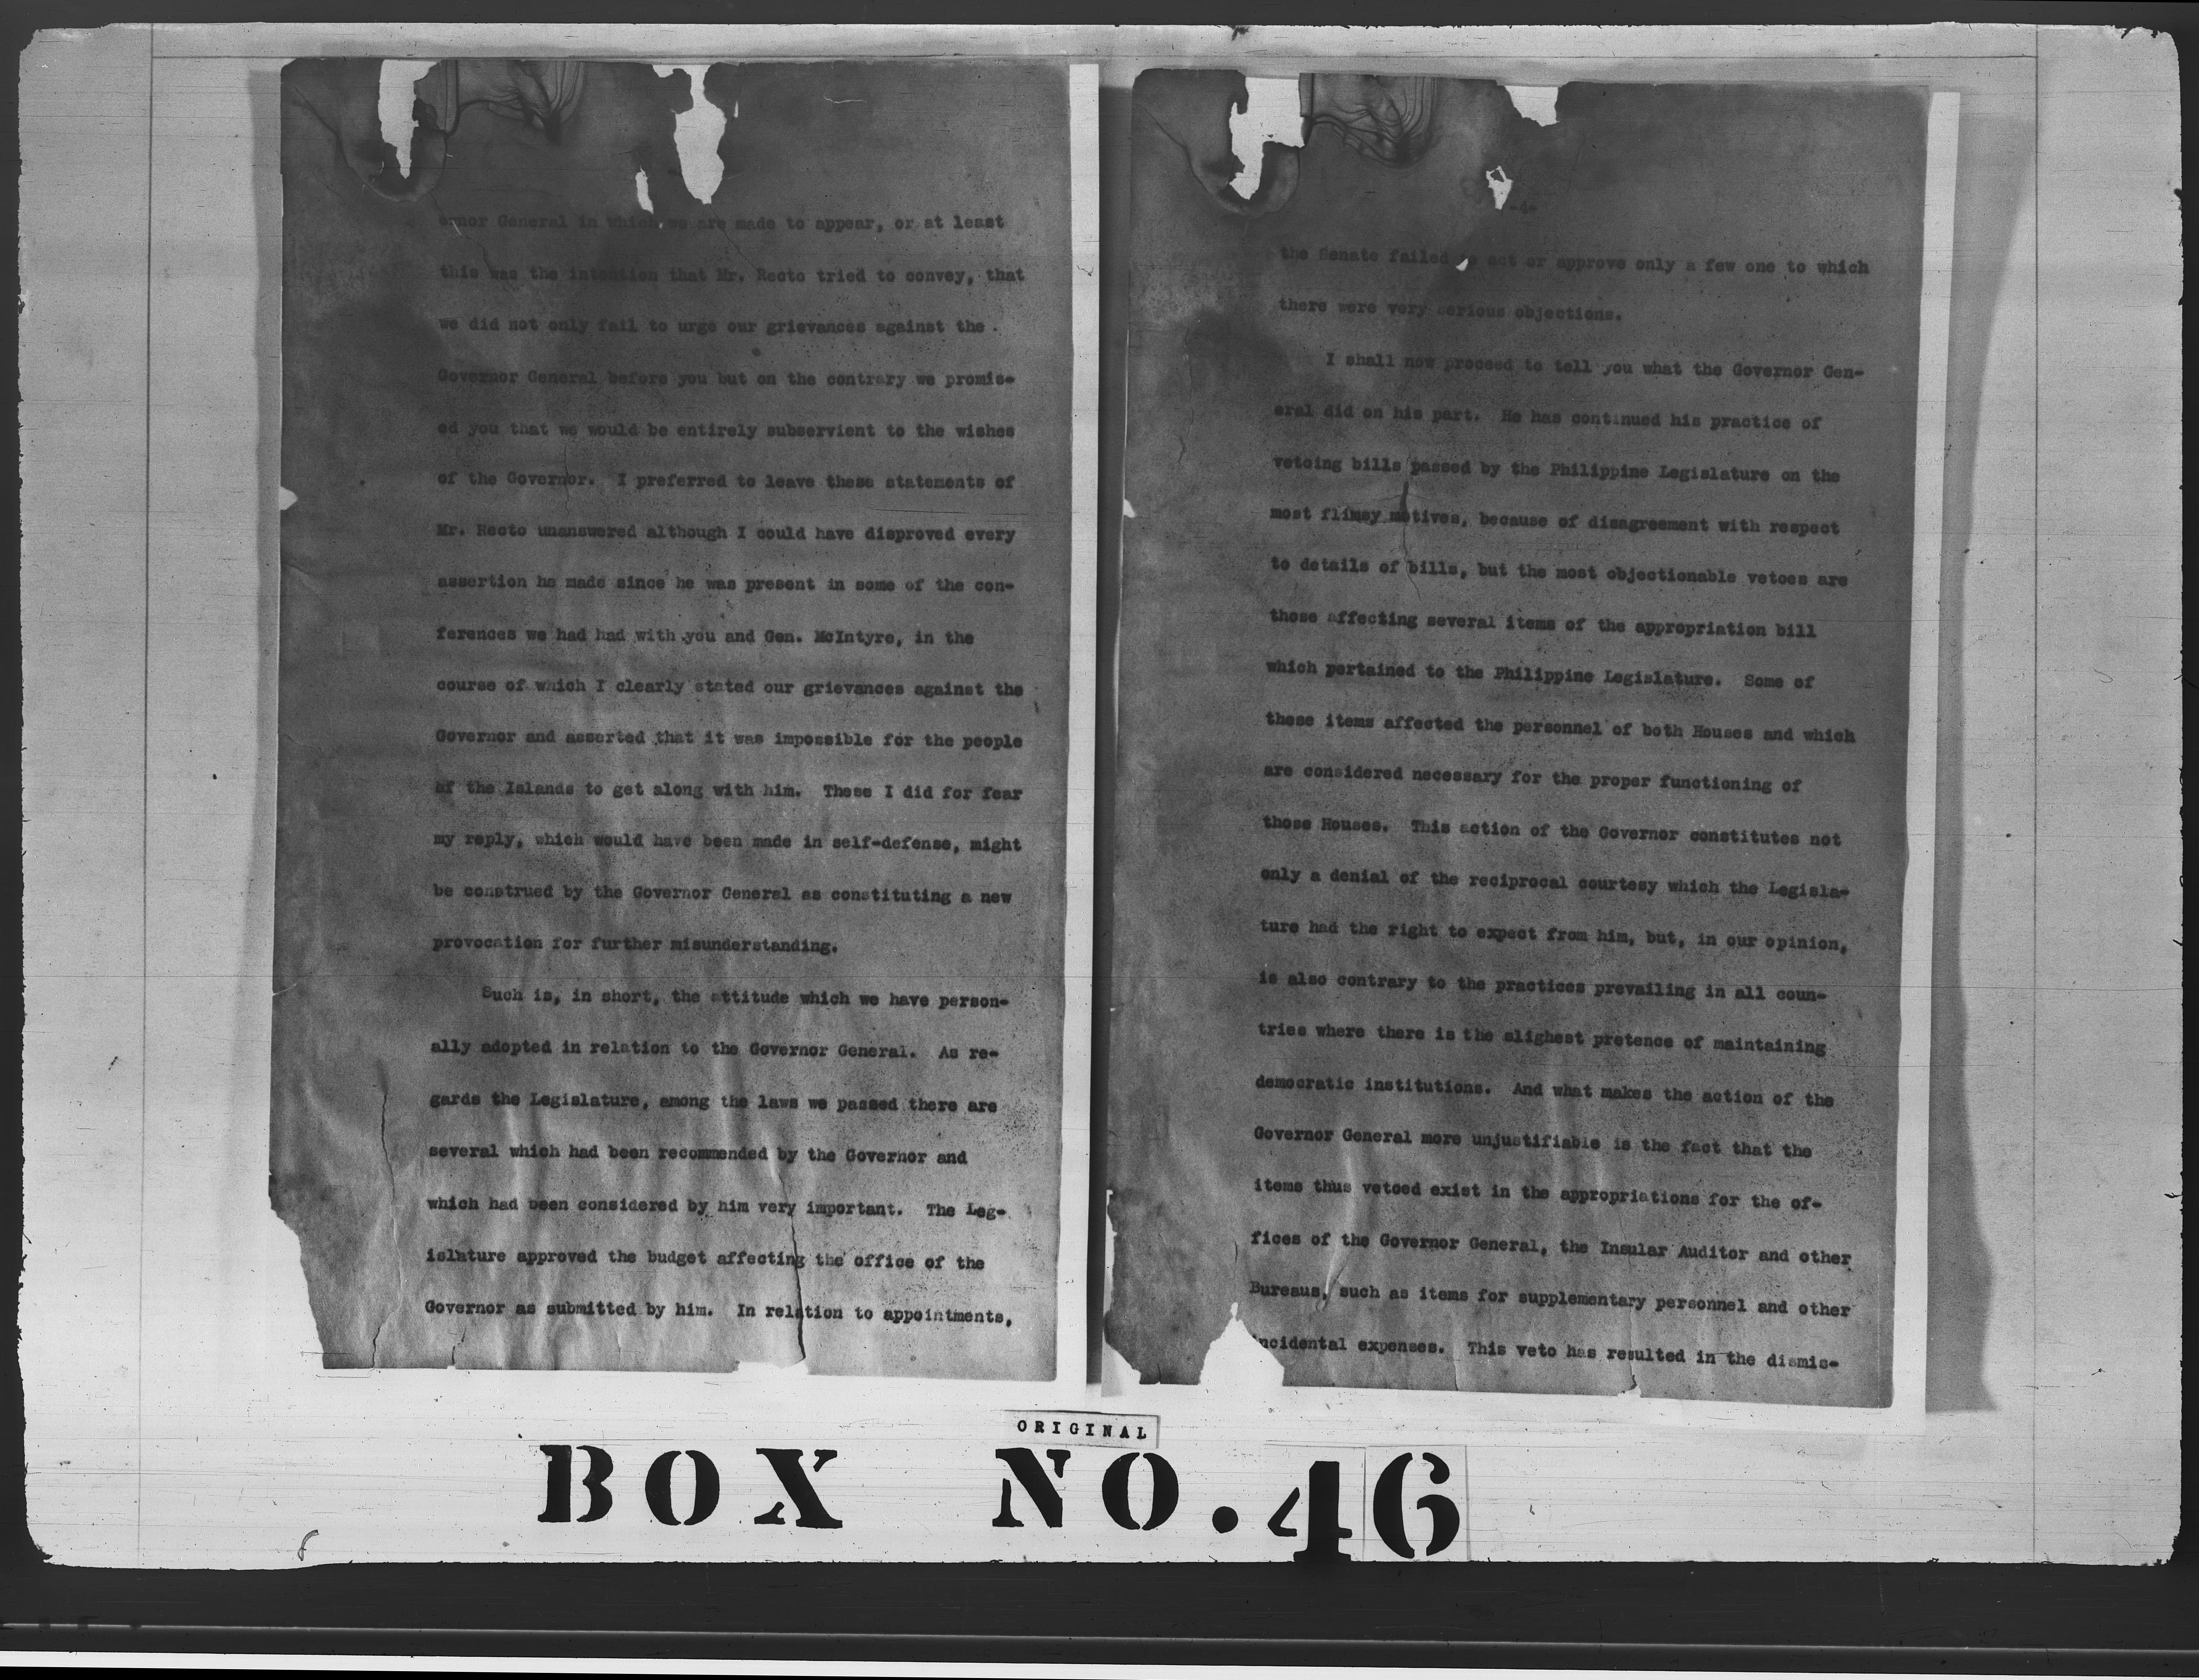 ernor General in which we are made to appear, or at least
this was the intention that Mr. Recto tried to convey, that
we did not only fail to urge our grievances against the
Governor General before you but on the contrary we promis-
ed you that we would be entirely subservient to the wishes
of the Governor. I preferred to leave these statements of
Mr. Recto unanswered although I could have disproved every
assertion he made since he was present in some of the con-
ferences we had had with you and Gen. McIntyre, in the
course of which I clearly stated our grievances against the
Governor and asserted that it was impossible for the people
of the Islands to get along with him. These I did for fear
my reply, which would have been made in self-defense, might
be construed by the Governor General as constituting a new
provocation for further misunderstanding.
Such is, in short, the attitude which we have person-
ally adopted in relation to the Governor General. As re-
gards the Legislature, among the laws we passed there are
several which had been recommended by the Governor and
which had been considered by him very important. The Leg-
islature approved the budget affecting the office of the
Governor as submitted by him. In relation to appointments,
-4-
the Senate failed to act or approve only a few one to which
there were very serious objections.
I shall now proceed to tell you what the Governor Gen-
eral did on his part. He has continued his practice of
vetoing bills passed by the Philippine Legislature on the
most flimsy motives, because of disagreement with respect
to details of bills, but the most objectionable vetoes are
those affecting several items of the appropriation bill
which pertained to the Philippine Legislature. Some of
these items affected the personnel of both Houses and which
are considered necessary for the proper functioning of
those Houses. This action of the Governor constitutes not
only a denial of the reciprocal courtesy which the Legisla-
ture had the right to expect from him, but, in our opinion,
is also contrary to the practices prevailing in all coun-
tries where there is the slighest pretence of maintaining
democratic institutions. And what makes the action of the
Governor General more unjustifiable is the fact that the
items thus vetoed exist in the appropriations for the of-
fices of the Governor General, the Insular Auditor and other
Bureaus, such as items for supplementary personnel and other
incidental expenses. This veto has resulted in the dismis-
ORIGINAL
BOX NO. 46
8